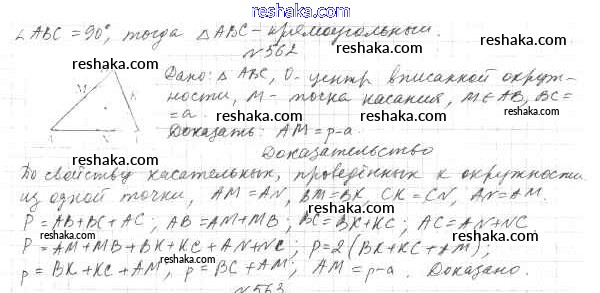 reshaka.com
∠ABC = 90°, тогда △ABC - прямоугольный.
reshaka.com
N562
reshaka.com reshaka.com
Дано: △ ABC, O - центр вписанной окруж-
M K
ности, M - точка касания, M∈AB, BC =
reshaka.com
= a.
Доказать: AM = p-a.
reshaka.com reshaka.com
Доказательство
По свойству касательных, проведённых к окружности
reshaka.com reshaka.com
из одной точки, AM = AN, BM = BK, CK = CN, AN = AM.
reshaka.com reshaka.com
P = AB+BC+AC; AB = AM+MB; BC = BK+KC; AC = AN+NC
P = AM+MB+BK+KC+AN+NC; P = 2(BK+KC+AM);
reshaka.com reshaka.com
p = BK+KC+AM, p = BC+AM; AM = p-a. Доказано.
reshaka.com reshaka.com
N563